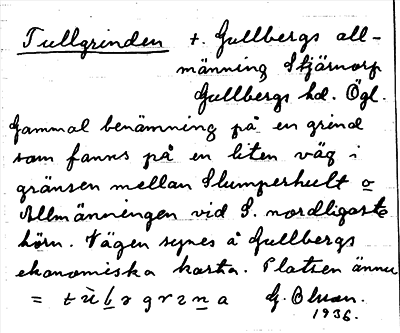 Tullgrinden t. Gullbergs all-
männing Stjärnorp
Gullbergs hd. Ögl.
Gammal benämning på en grind
som fanns på en liten väg i
gränsen mellan Slumperhult o
Allmänningen vid S. nordligaste
hörn. Vägen synes å Gullbergs
ekonomiska karta. Platsen ännu
=
G. Olson.
1936.